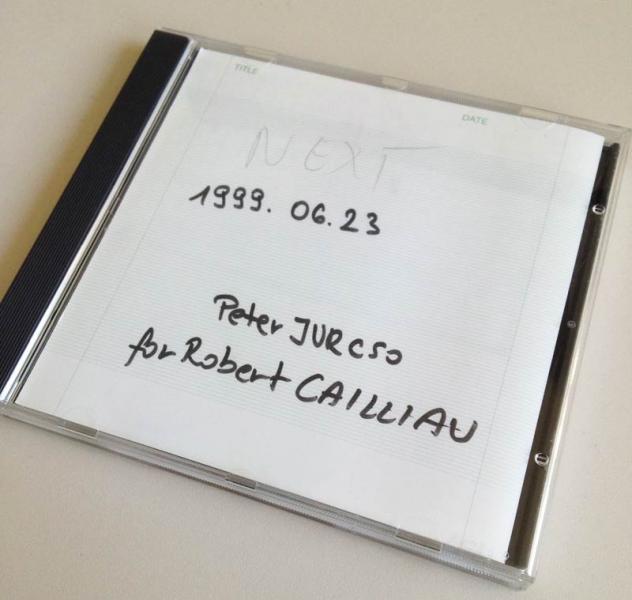 TITLE
DATE
NEXT
1999. 06.23
Peter JURCSO
for Robert CAILLIAU